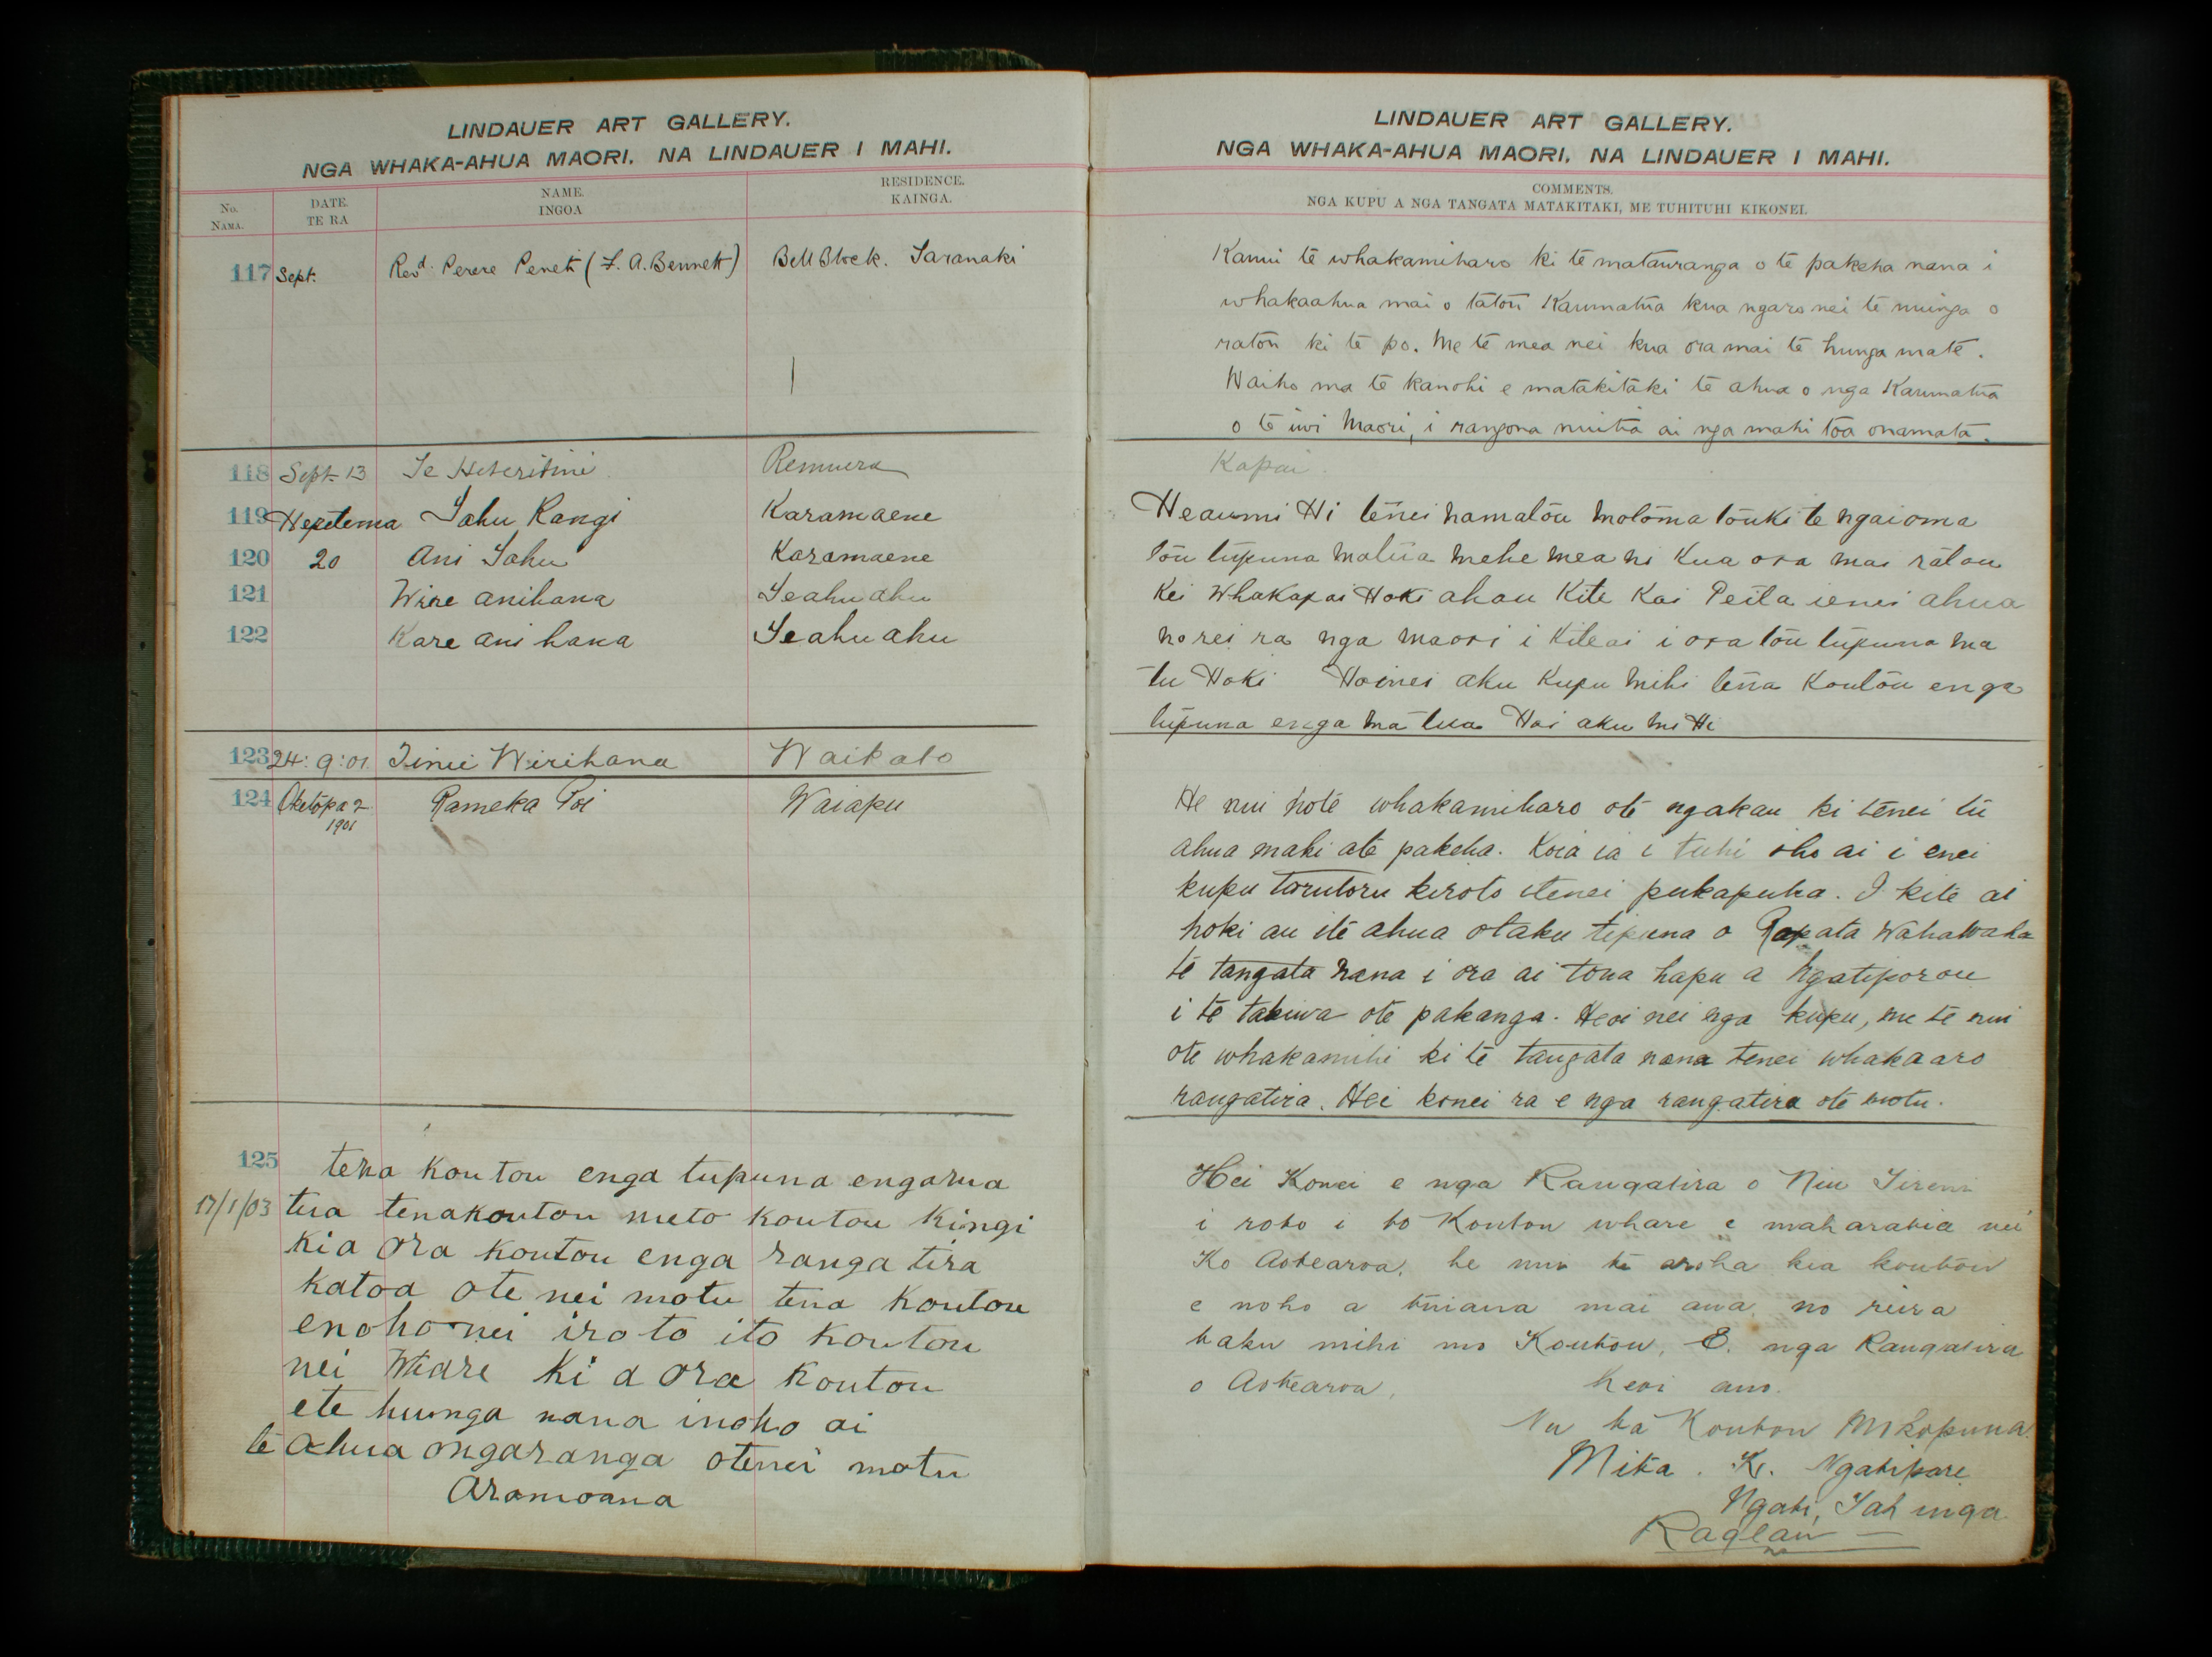 LINDAUER ART GALLERY.
NGA WHAKA-AHUA MAORI. NA LINDAUER I MAHI.
No. DATE. NAME. RESIDENCE.
NAMA. TE RA INGOA KAINGA.
117 Sept. Revd. Perere Peneti (F. A. Bennett) Bell Block. Taranaki
118 Sept 13 Te Heteritini Remuera
119 Hepetema Tahu Rangi Karamaene
120 20 Ani Tahu Karamaene
121 Wire anihana Teahuahu
122 Kare ani hana Teahuahu
123 24:9:01 Tinii Wirihana Waikato
124 Oketopa 2 Rameka Poi Waiapu
1901
125 tena koutou enga tupuna engarua
17/1/03 tua tenakoutou meto koutou Kingi
kia ora koutou enga ranga tira
katoa ote nei motu tena koutou
enoho nei iroto ito koutou
nei Whare ki a ora koutou
ete hunga nana inoho ai
te ahua ongaranga otenei motu
Aramoana
LINDAUER ART GALLERY.
NGA WHAKA-AHUA MAORI. NA LINDAUER I MAHI.
COMMENTS.
NGA KUPU A NGA TANGATA MATAKITAKI, ME TUHITUHI KIKONEI.
Kanui te whakamiharo ki te matauranga o te pakeha nana i
whakaahua mai o tatou Kaumatua kua ngaro nei te nuinga o
ratou ki te po. Me te mea nei kua ora mai te hunga mate.
Waiho ma te kanohi e matakitaki te ahua o nga Kaumatua
o te iwi Maori, i rangona nuitia ai nga mahi toa onamata.
Kapai.
Heaumi Hi tenei namatou motoma touki te ngaioma
tou tupuna matua mehe mea ni Kua ora mai ratou
Kei Whakapai Hoki ahau Kite Kai Peita ienei ahua
no rei ra nga maori i Kiteai i ora tou tupuna ma
tu Hoki Hoinei aku Kupu mihi tena Koutou enga
tupuna enga ma tua Hoi aku mi Hi
He nui note whakamiharo ote ngakau ki tenei tu
ahua mahi ate pakeha. Koia ia i tuhi iho ai i enei
kupu torutoru kiroto itenei pukapuka. I kite ai
hoki au ite ahua otaku tipuna o Rapata Wahawaha
te tangata nana i ora ai tona hapu a Ngatiporou
i te takiwa ote pakanga. Heoi nei nga kupu, me te nui
ote whakamihi ki te tangata nana tenei whakaaro
rangatira. Hei konei ra e nga rangatira ote motu.
Hei Konei e nga Rangatira o Niu Tireni
i roto i to Koutou whare e maharatia nei
Ko Aotearoa. he nui te aroha kia koutou
e noho a tuiana mai ana. no reira
taku mihi mo Koutou, E. nga Rangatira
o Aotearoa, heoi ano.
Na ta Koutou Mokopuna
Mita. K. Ngatipare
Ngati, Tah inga
Raglan